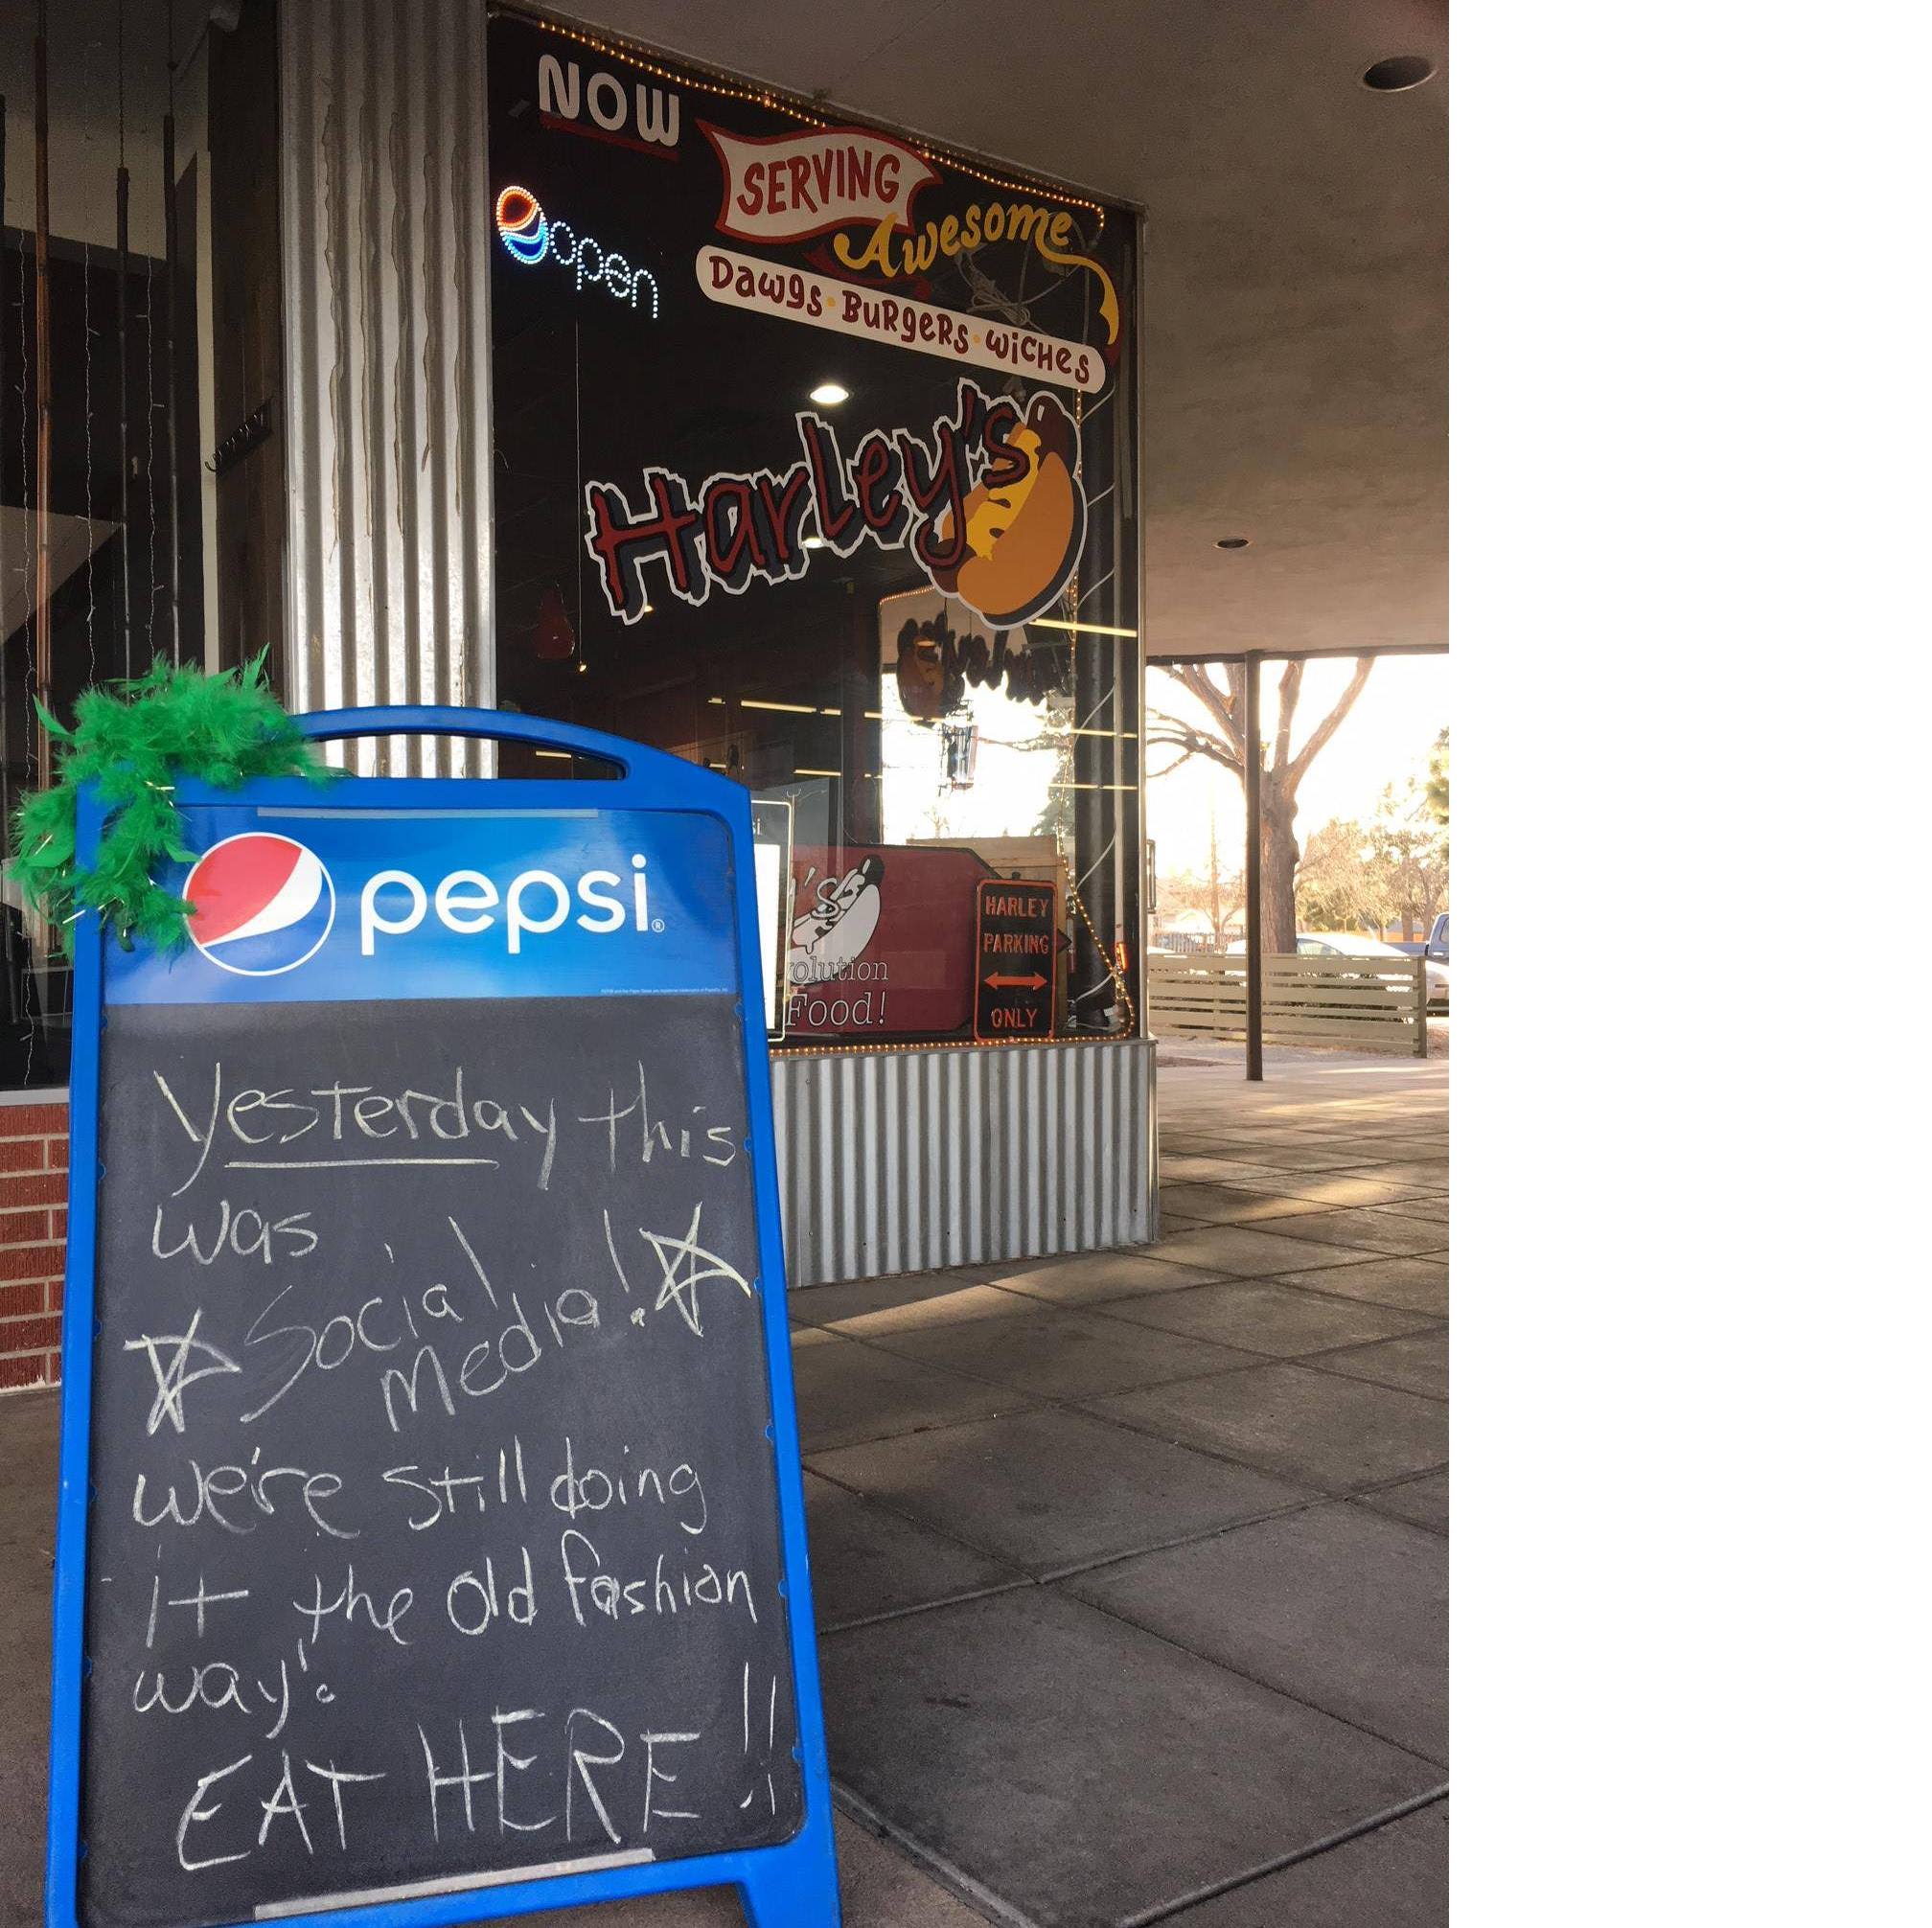 NOW
SERVING
Awesome
open
Dawgs · BuRgeRs · wicHes
Harley's
pepsi®
's
olution
Food!
HARLEY
PARKING
ONLY
Yesterday this
was
Social
media!
we're still doing
it the old fashion
way!
EAT HERE!!